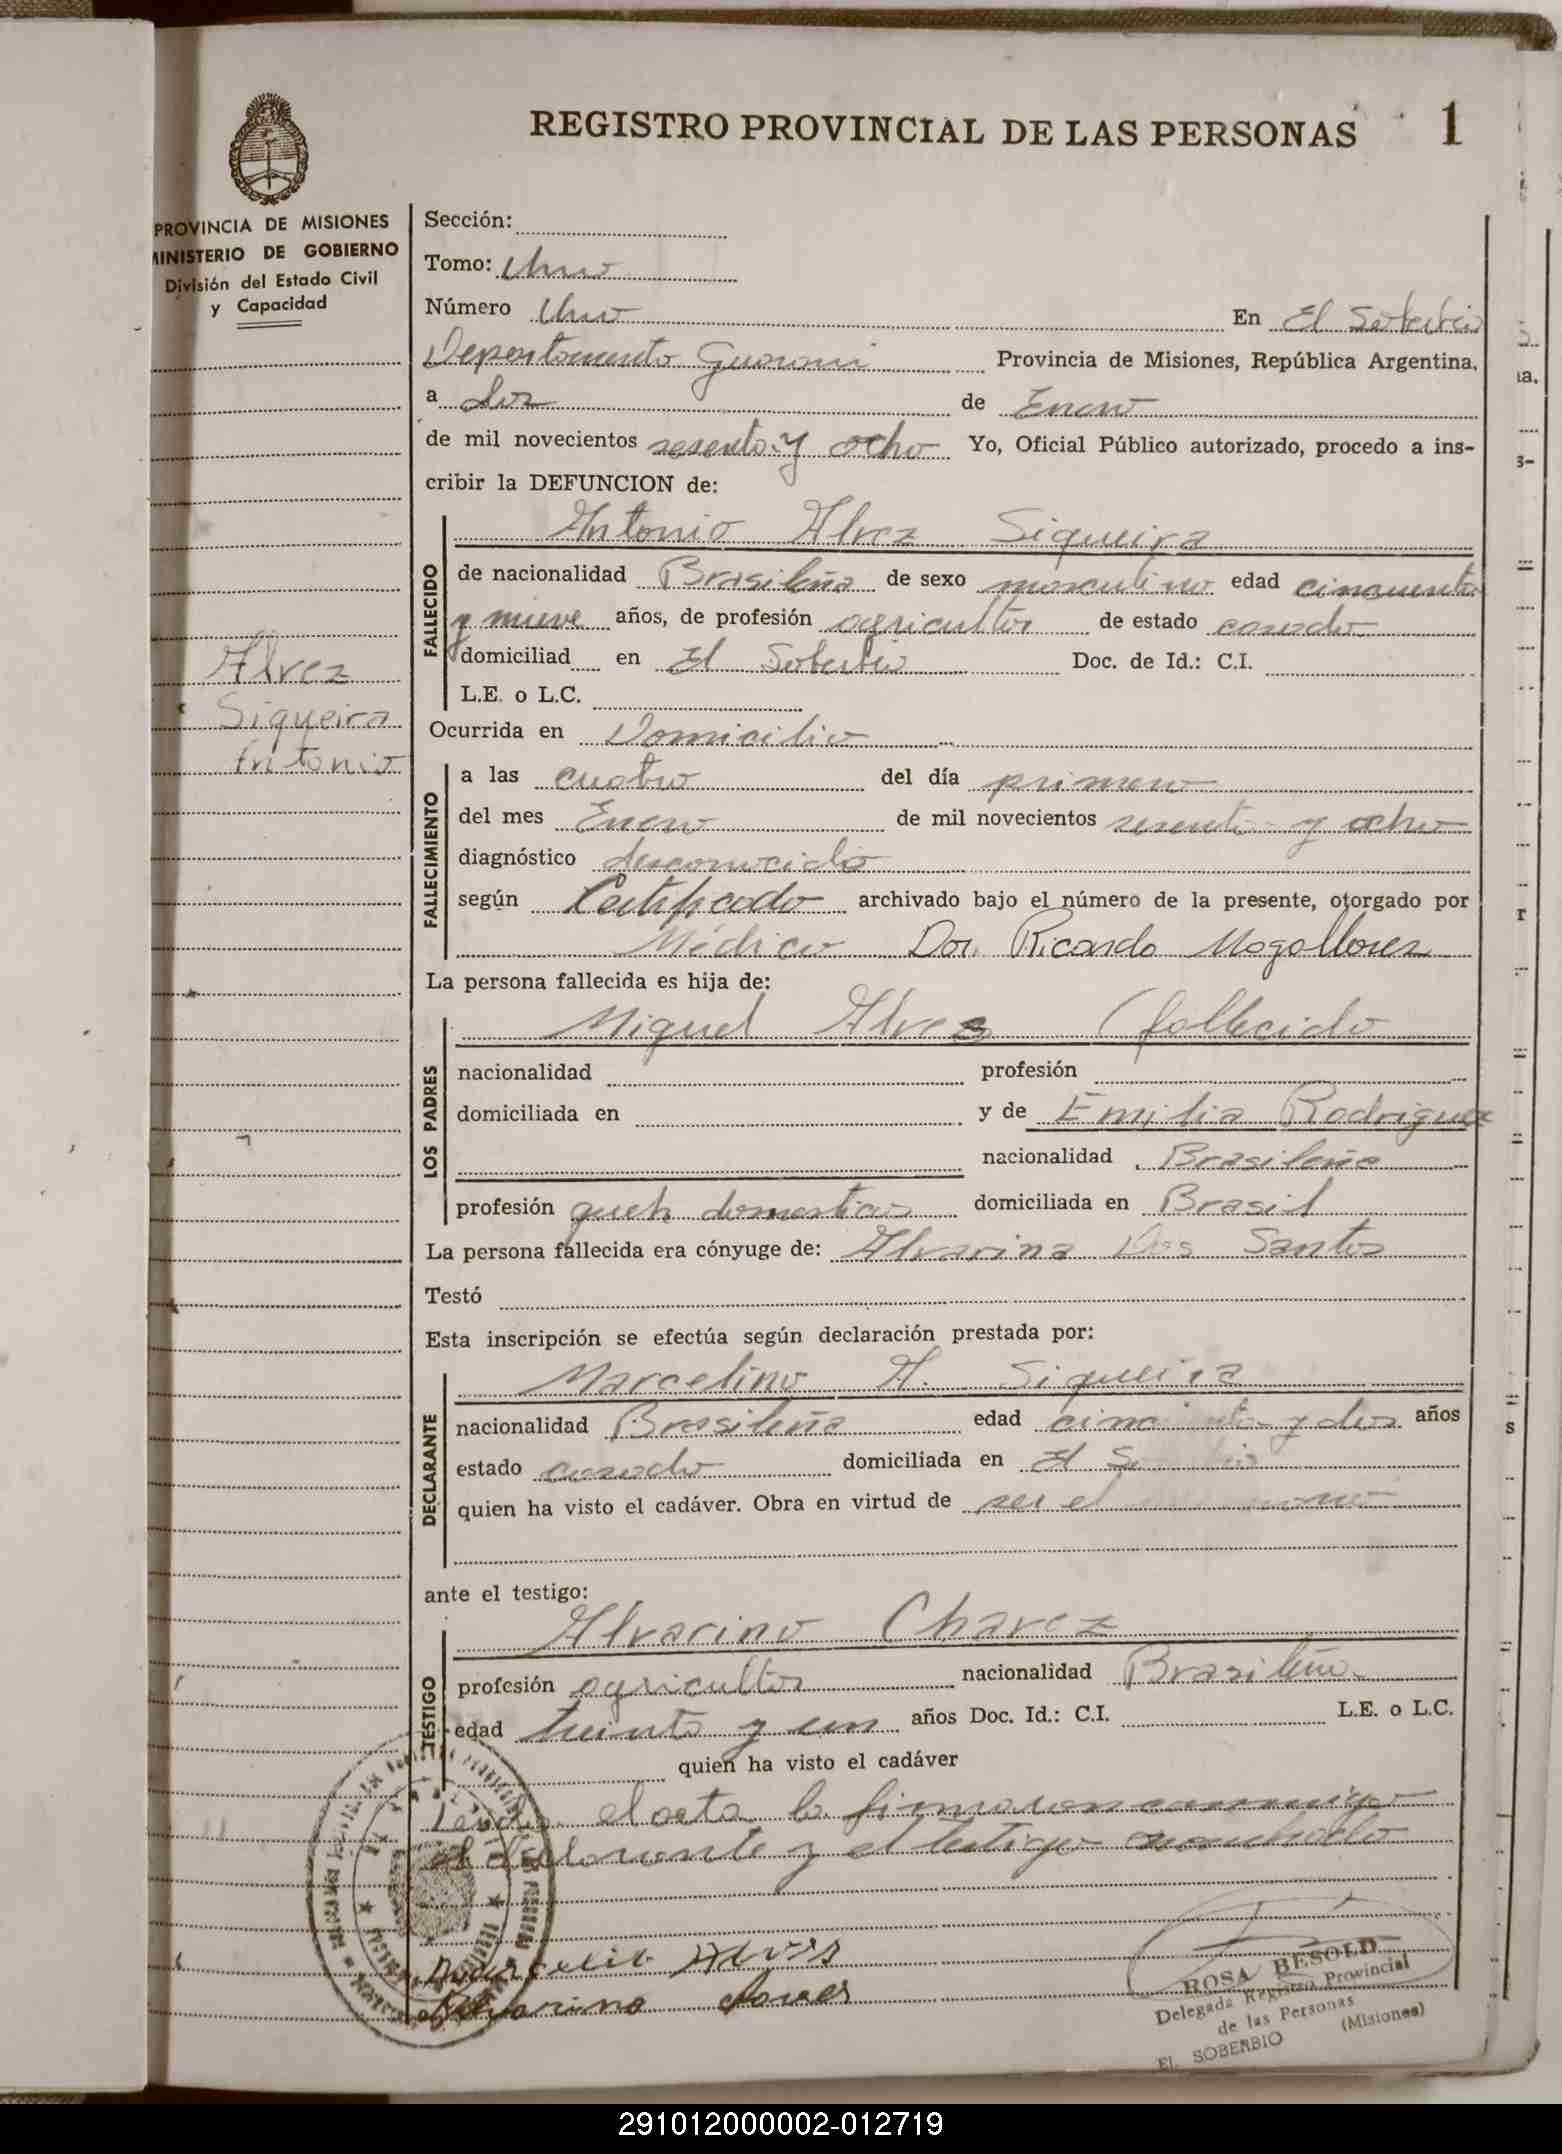 REGISTRO PROVINCIAL DE LAS PERSONAS 1
PROVINCIA DE MISIONES
MINISTERIO DE GOBIERNO
División del Estado Civil
y Capacidad
Alvez
Siqueira
Antonio
Sección:
Tomo: Uno
Número Uno En El Soberbio
Departamento Guarani Provincia de Misiones, República Argentina,
a dos de Enero
de mil novecientos sesenta y ocho Yo, Oficial Público autorizado, procedo a ins-
cribir la DEFUNCION de:
Antonio Alvez Siqueira
FALLECIDO
de nacionalidad Brasileña de sexo masculino edad cincuenta
y nueve años, de profesión agricultor de estado casado
domiciliad en El Soberbio Doc. de Id.: C.I.
L.E. o L.C.
Ocurrida en Domicilio
FALLECIMIENTO
a las cuatro del día primero
del mes Enero de mil novecientos sesenta y ocho
diagnóstico desconocido
según Certificado archivado bajo el número de la presente, otorgado por
Médico Dor. Ricardo Mogollones
La persona fallecida es hija de:
Miguel Alves (fallecido
LOS PADRES
nacionalidad profesión
domiciliada en y de Emilia Rodriguez
nacionalidad Brasileña
profesión queh domesticos domiciliada en Brasil
La persona fallecida era cónyuge de: Alvarina Dos Santos
Testó
Esta inscripción se efectúa según declaración prestada por:
Marcelino A. Siqueira
DECLARANTE
nacionalidad Brasileña edad cincuenta y dos años
estado casado domiciliada en El Soberbio
quien ha visto el cadáver. Obra en virtud de ser el
ante el testigo:
Alvarino Chavez
TESTIGO
profesión agricultor nacionalidad Brasileña
edad treinta y un años Doc. Id.: C.I. L.E. o L.C.
quien ha visto el cadáver
Leida el acta la firmaron conmigo
el declarante y el testigo
Alves
Alvarino
ROSA BESOLD
Delegada Registro Provincial
de las Personas
EL SOBERBIO (Misiones)
291012000002-012719